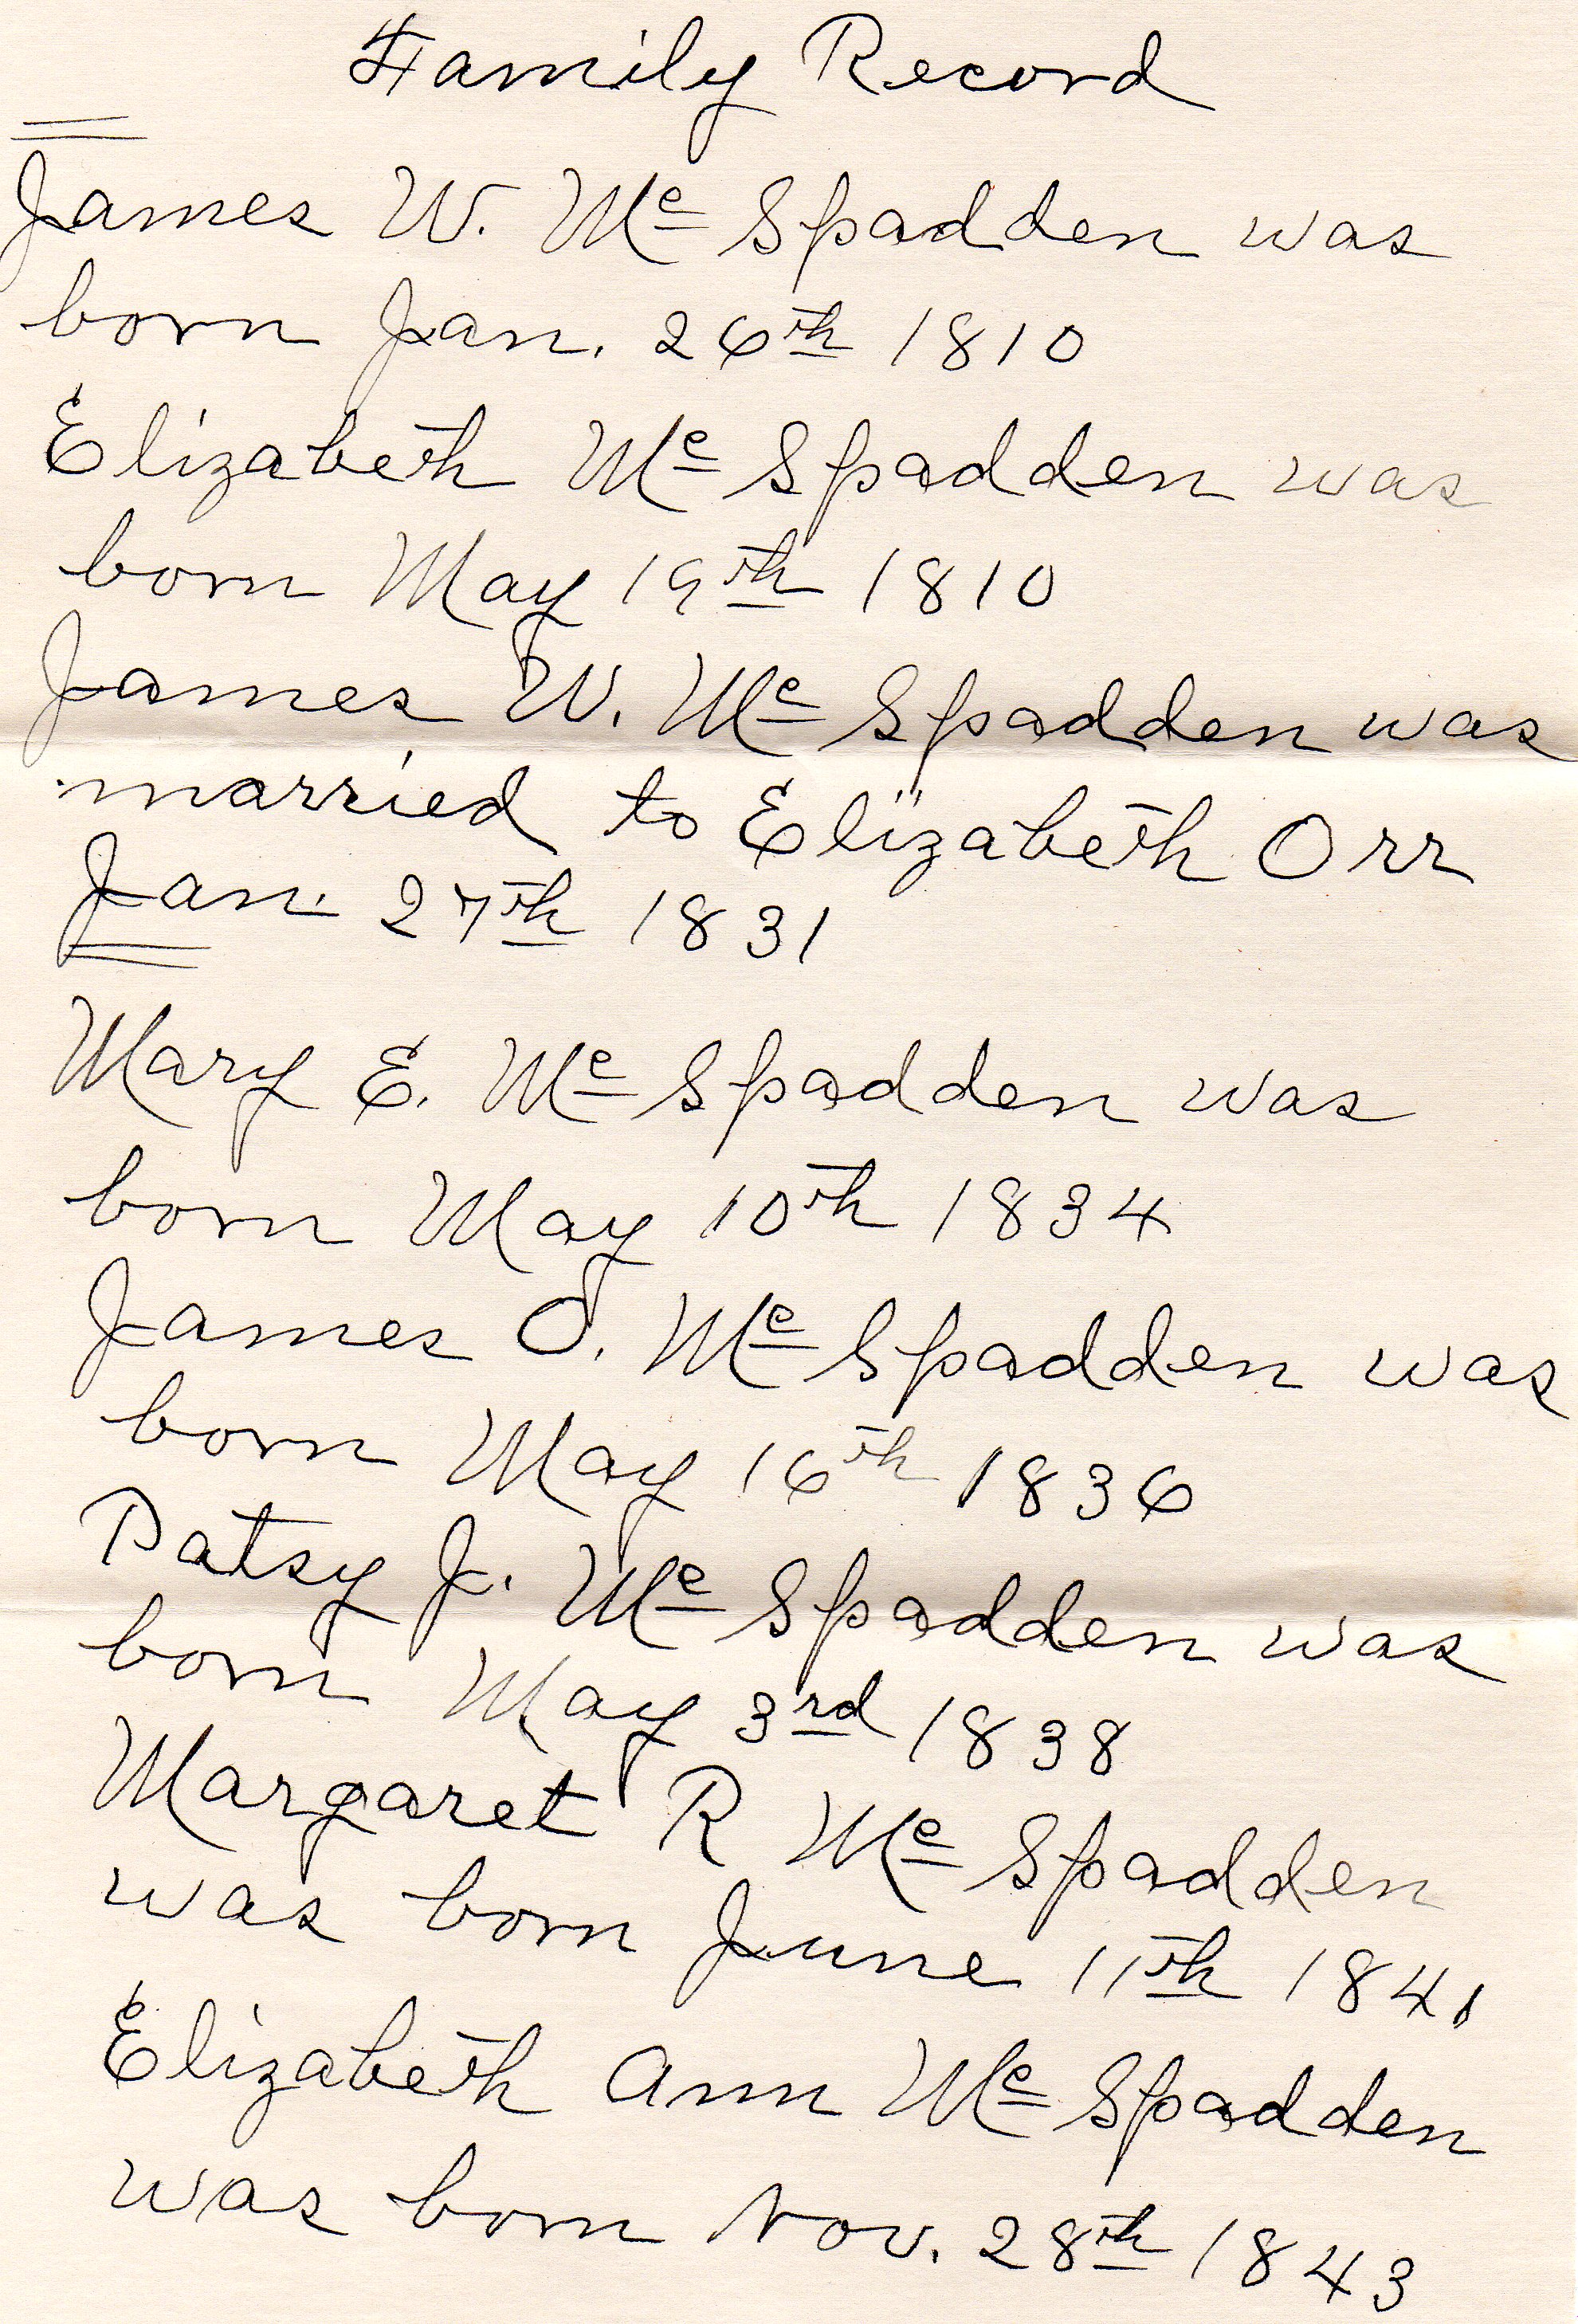 Family Record
James W. Mc Spadden was
born Jan. 26th 1810
Elizabeth Mc Spadden was
born May 19th 1810
James W. Mc Spadden was
married to Elizabeth Orr
Jan. 27th 1831
Mary E. Mc Spadden was
born May 10th 1834
James O. Mc Spadden was
born May 16th 1836
Patsy J. Mc Spadden was
born May 3rd 1838
Margaret R Mc Spadden
was born June 11th 1841
Elizabeth Ann Mc Spadden
was born Nov. 28th 1843